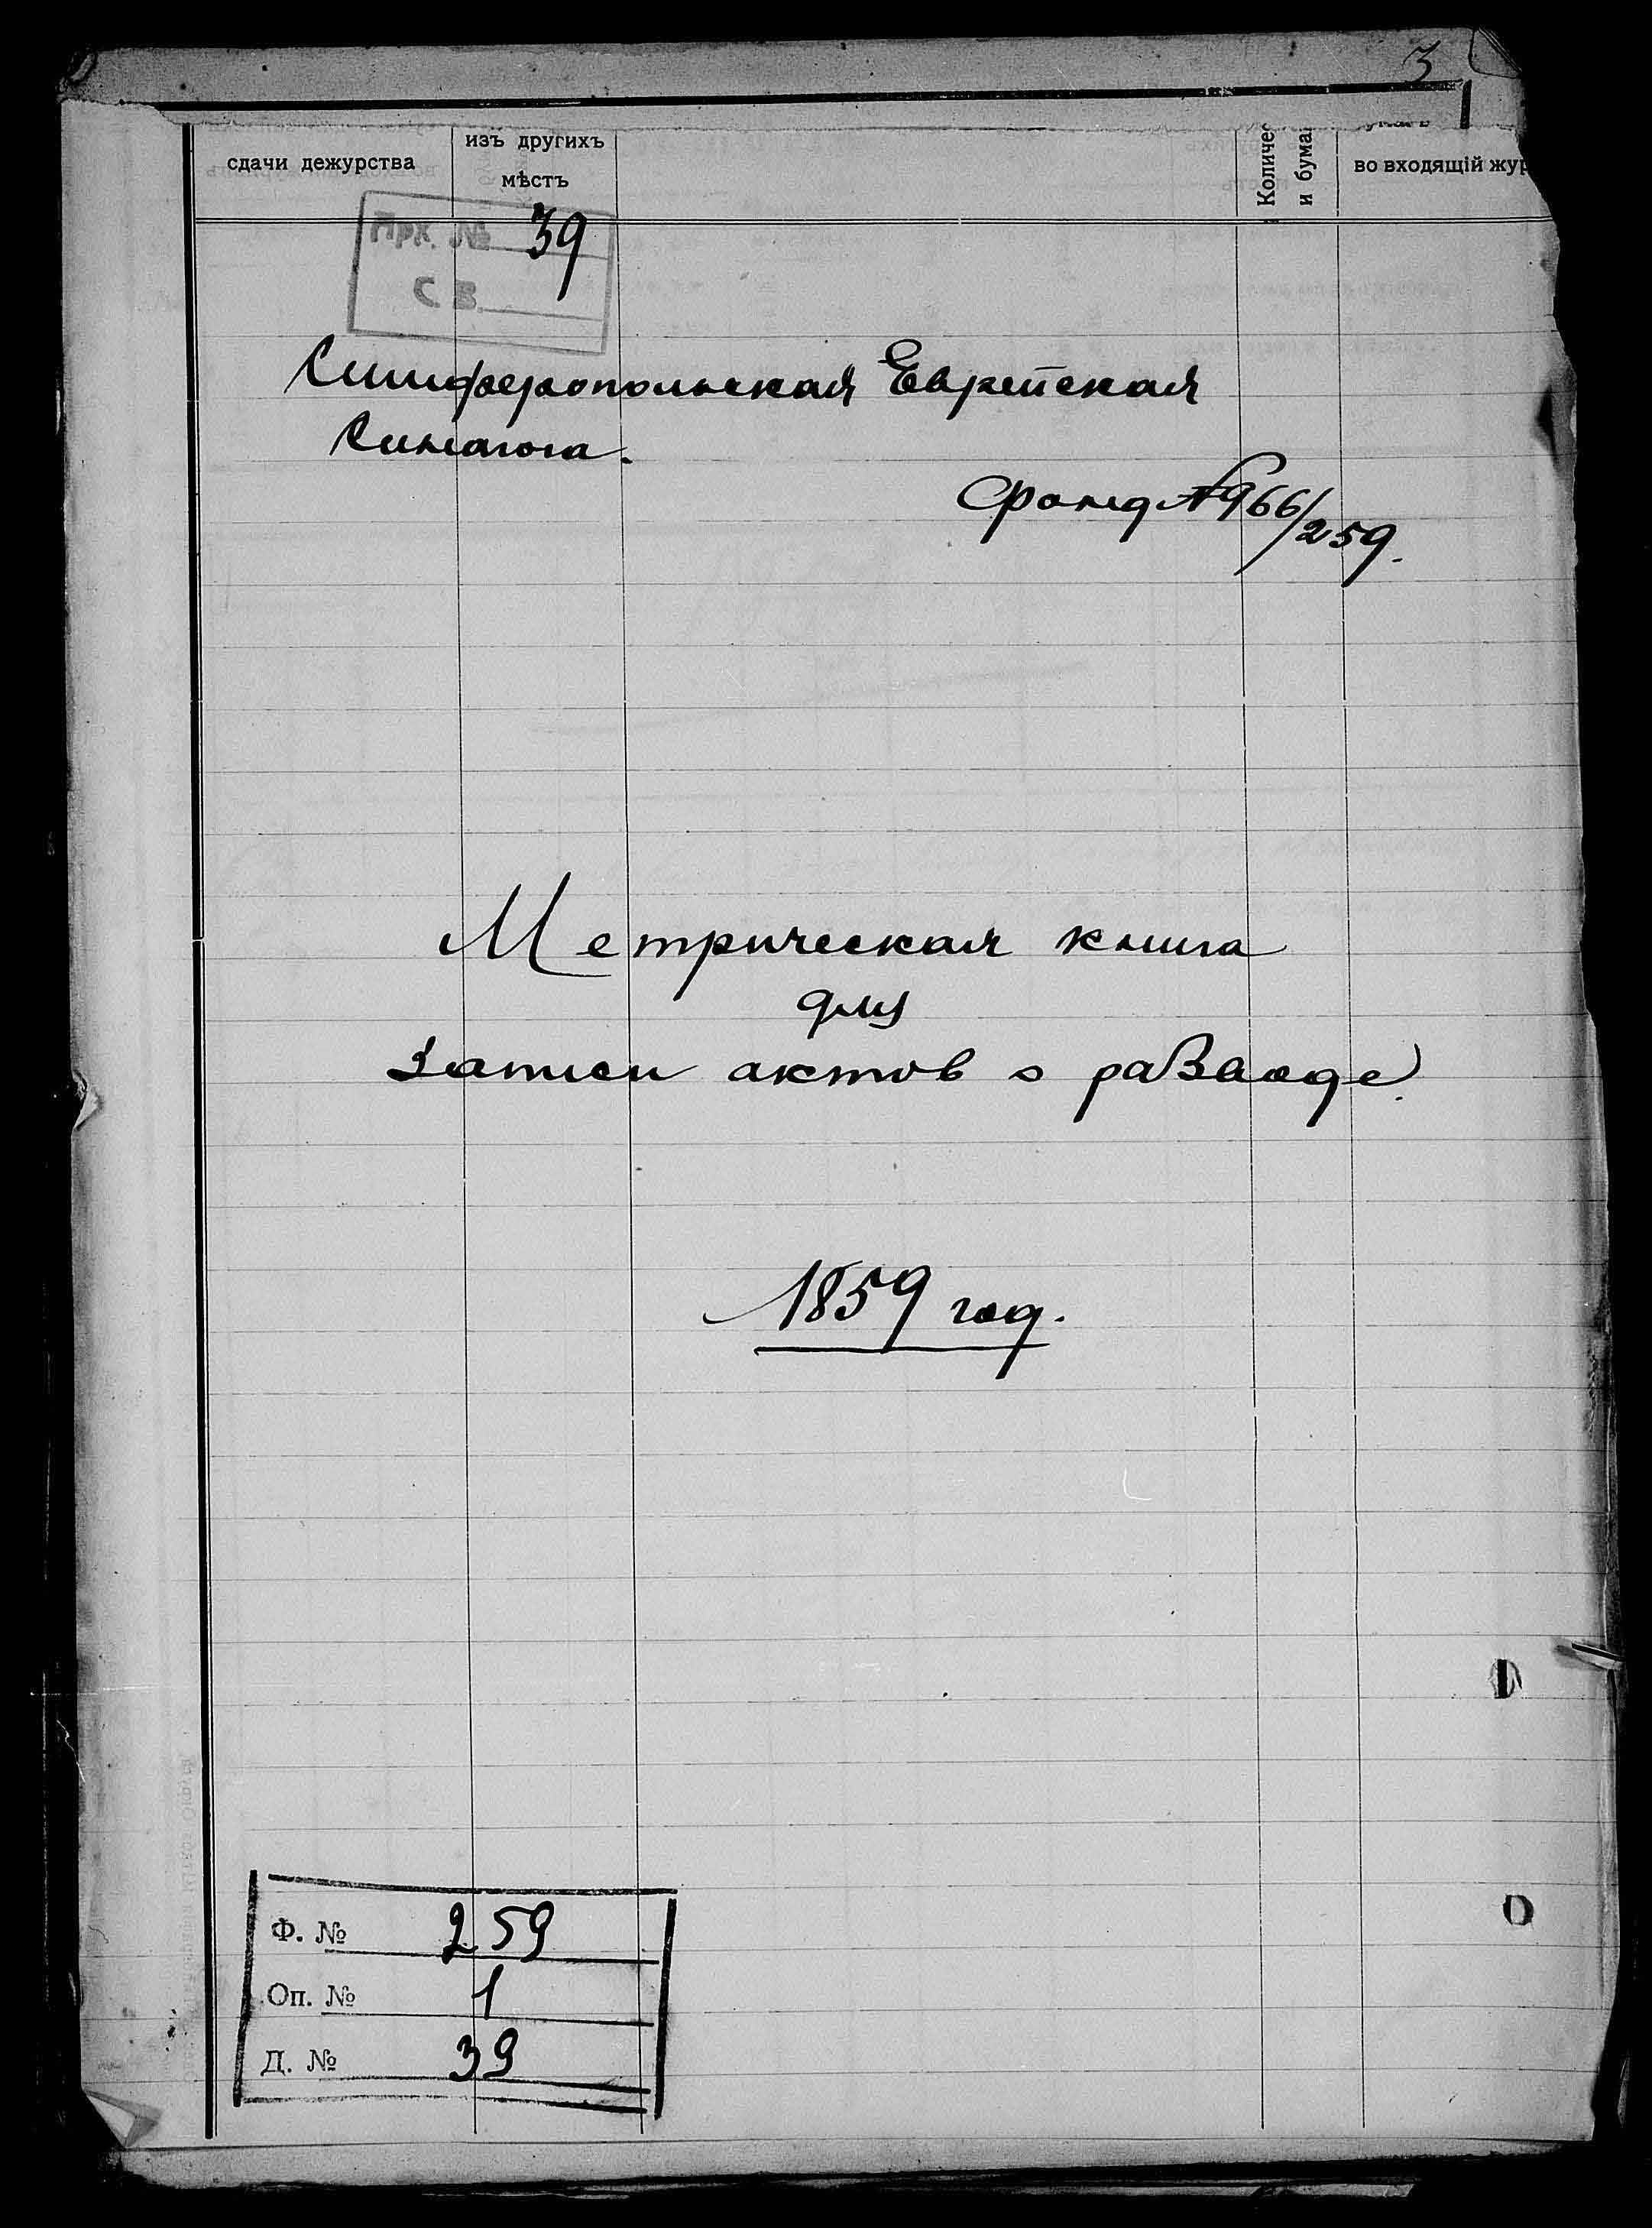 3
сдачи дежурства
изъ другихъ
мѣстъ
Количес
и бума
во входящій жур
Арх. № 39
С В.
Симферопольская Еврейская
Синагога.
Фонд № 966/259.
Метрическая книга
для
Записи актов о разводе.
1859 год.
Ф. № 259
Оп. № 1
Д. № 39